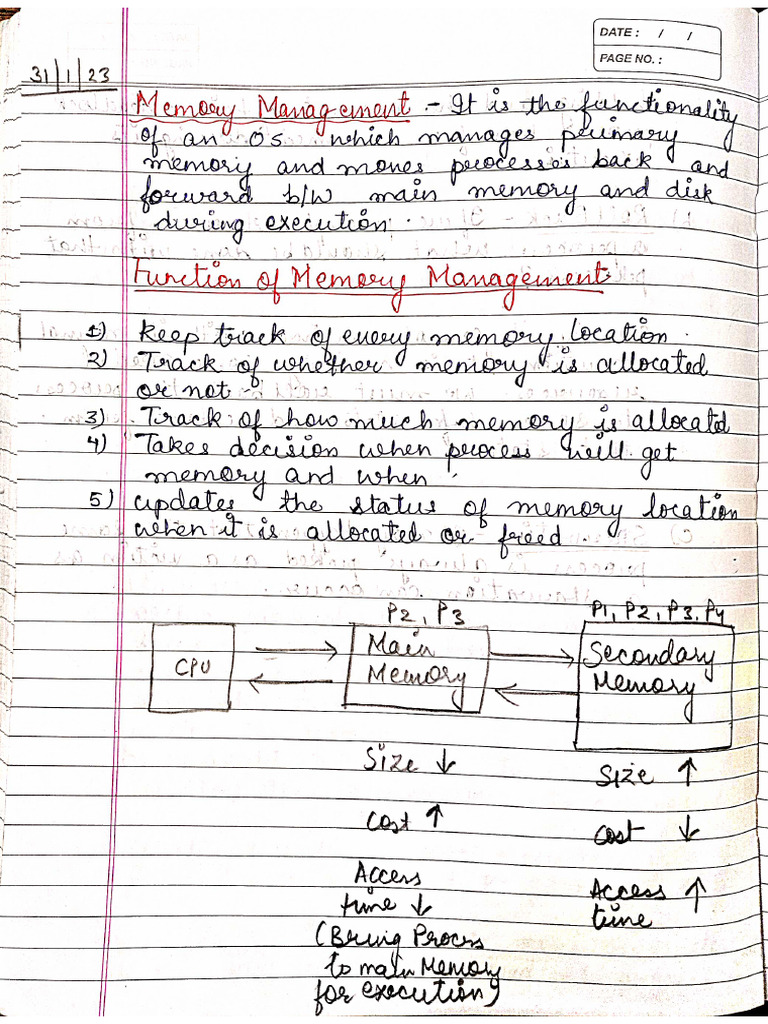 DATE : / /
PAGE NO. :
31/1/23
Memory Management - It is the functionality
of an OS which manages primary
memory and moves processes back and
forward b/w main memory and disk
during execution.
Function of Memory Management
1) Keep track of every memory location.
2) Track of whether memory is allocated
or not.
3) Track of how much memory is allocated
4) Takes decision when process will get
memory and when.
5) updates the status of memory location
when it is allocated or freed.
P2, P3 P1, P2, P3, P4
CPU Main Memory Secondary Memory
Size ↓ Size ↑
Cost ↑ Cost ↓
Access time ↓ Access time ↑
(Bring Process
to main Memory
for execution)